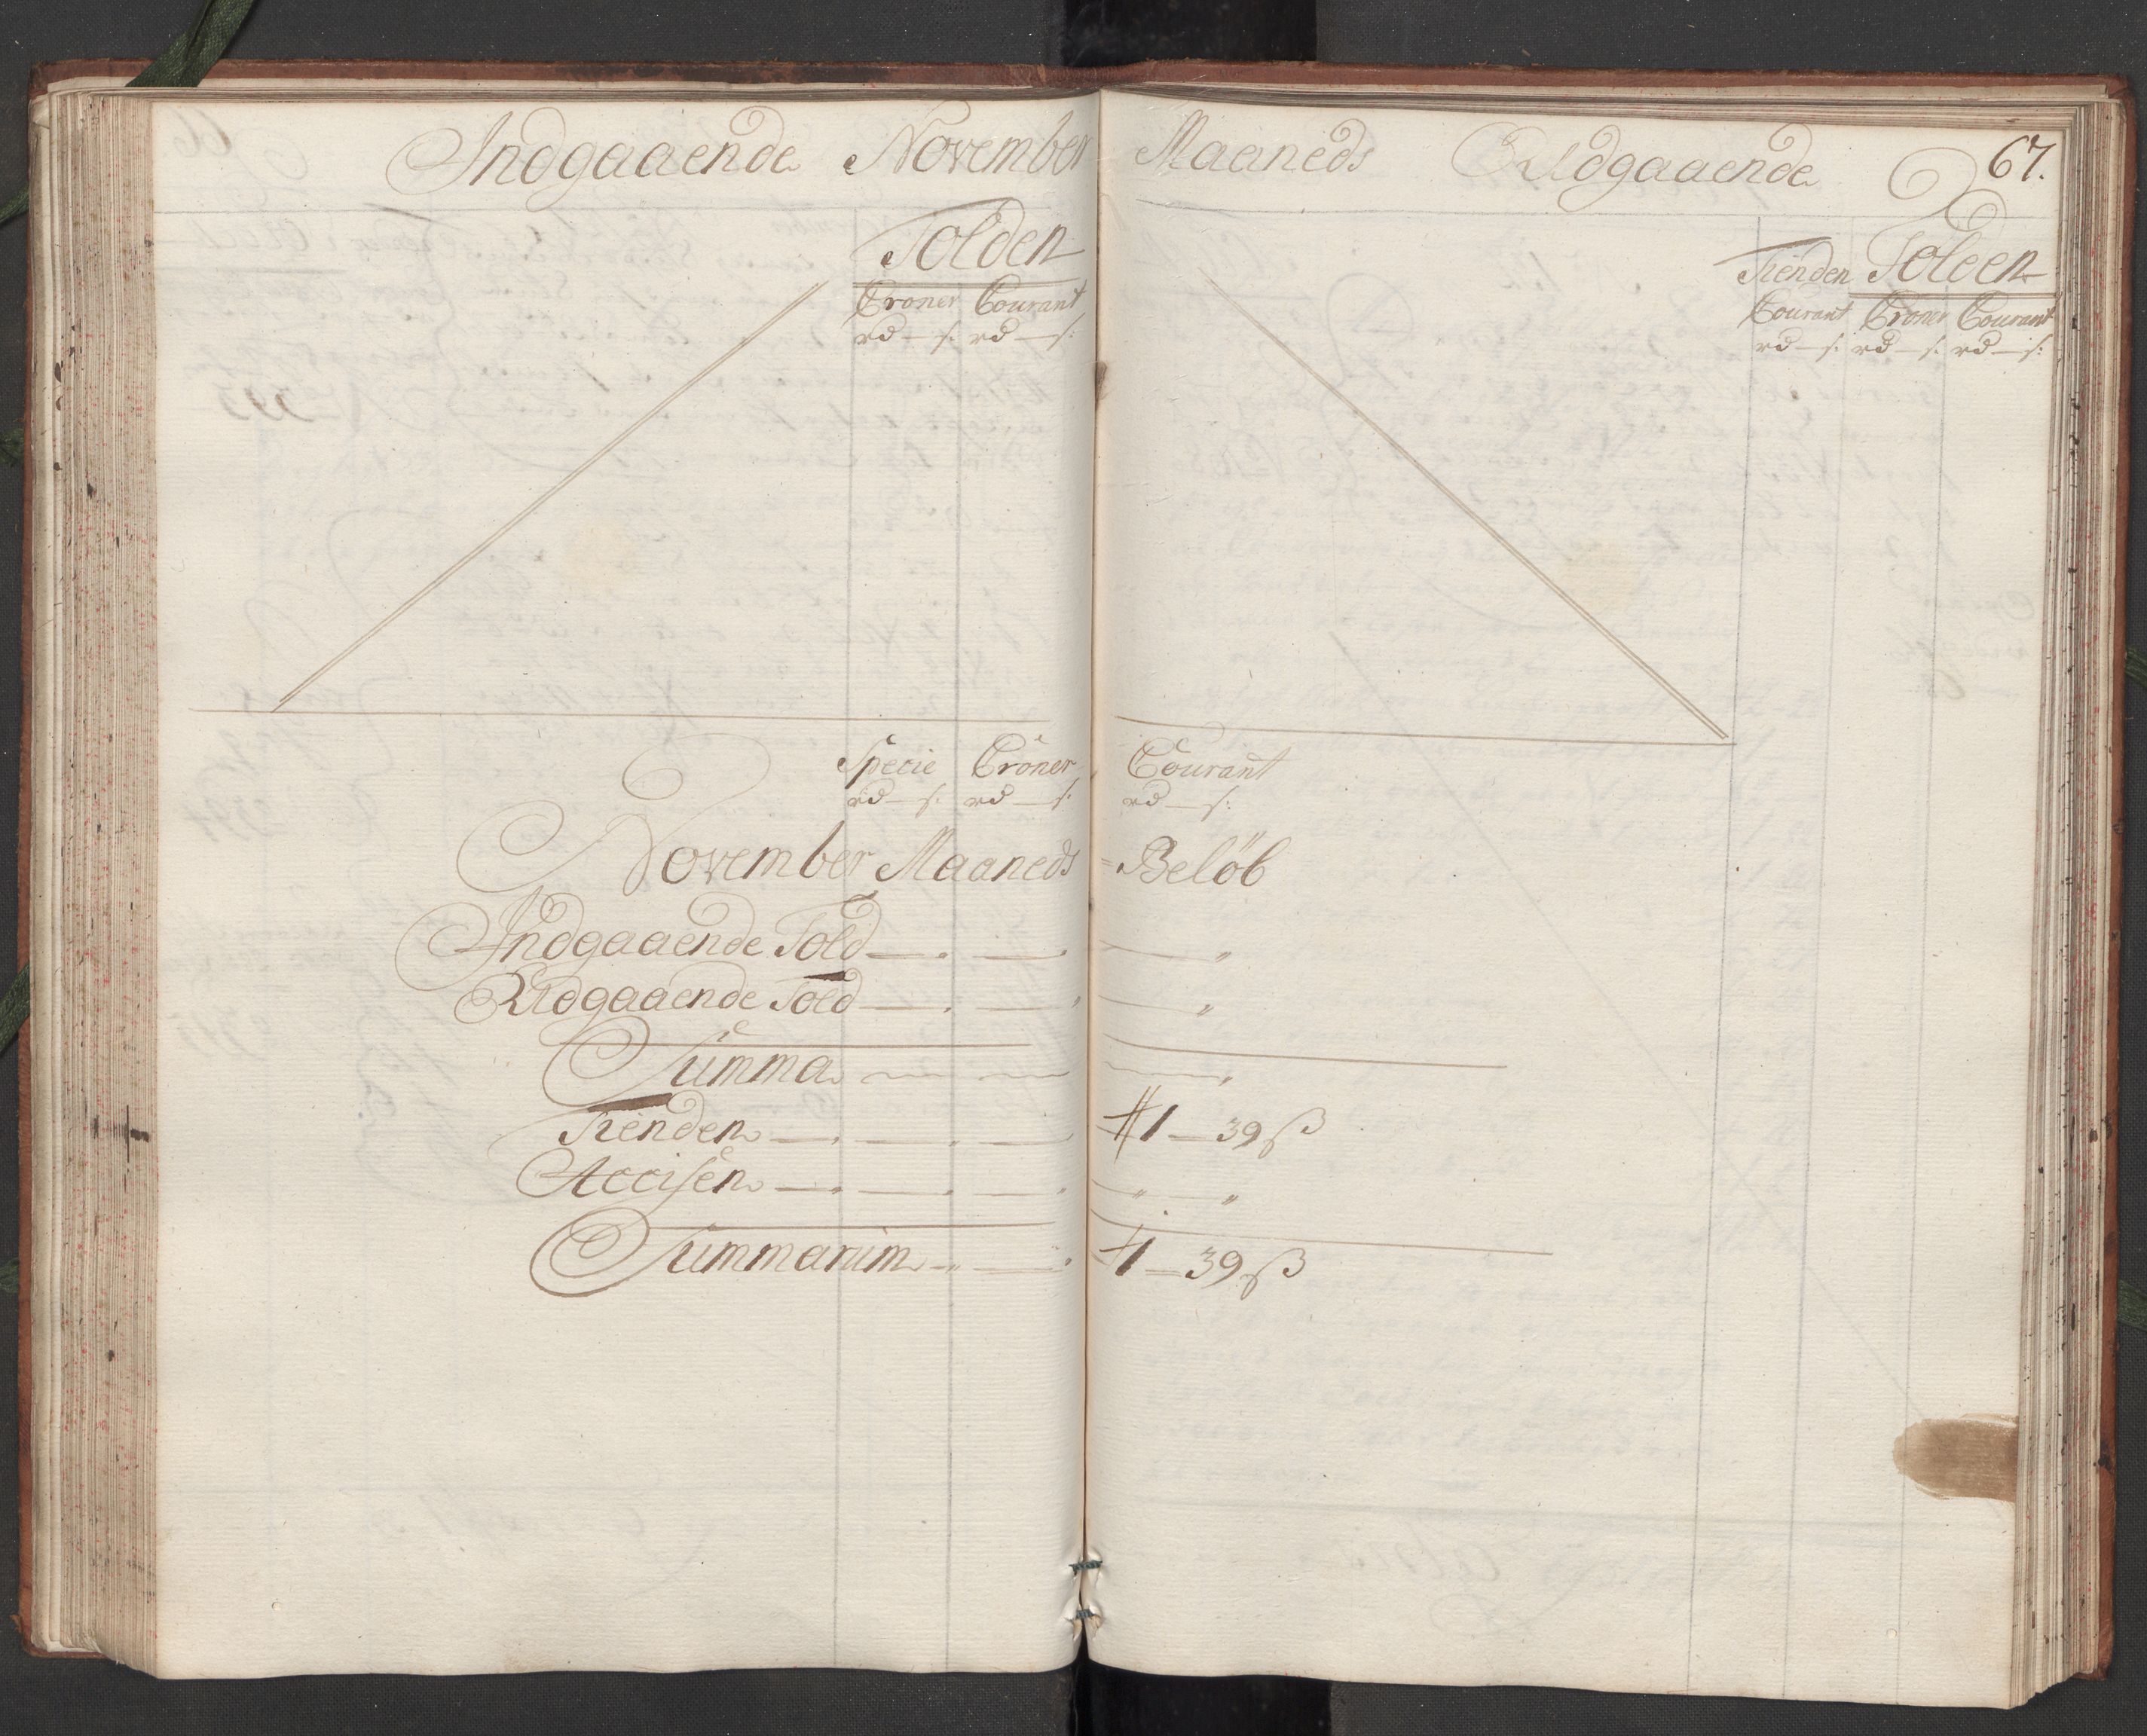 Indgaaende November Maaneds Udgaaende 67.
Tolden
Croner Courant
rd — s: rd — s:
Tienden Tolden
Courant Croner Courant
rd — s: rd — s: rd — s:
Specie Croner Courant
rd — s: rd — s: rd — s:
November Maaneds Beløb
Indgaaende Told — " — " — "
Udgaaende Told — " — " — "
Summa — — — "
Tienden — " — " — 1 — 39 ß
Accisen — " — " — " — "
Summarum — " — " 1 — 39 ß